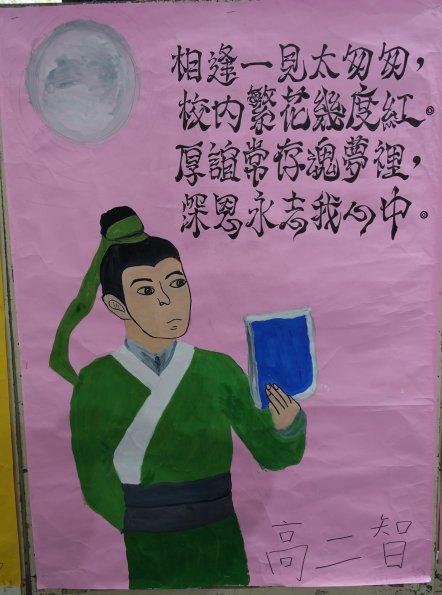 相逢一見太匆匆，
校內繁花幾度紅。
厚誼常存魂夢裡，
深恩永志我心中。
高二智